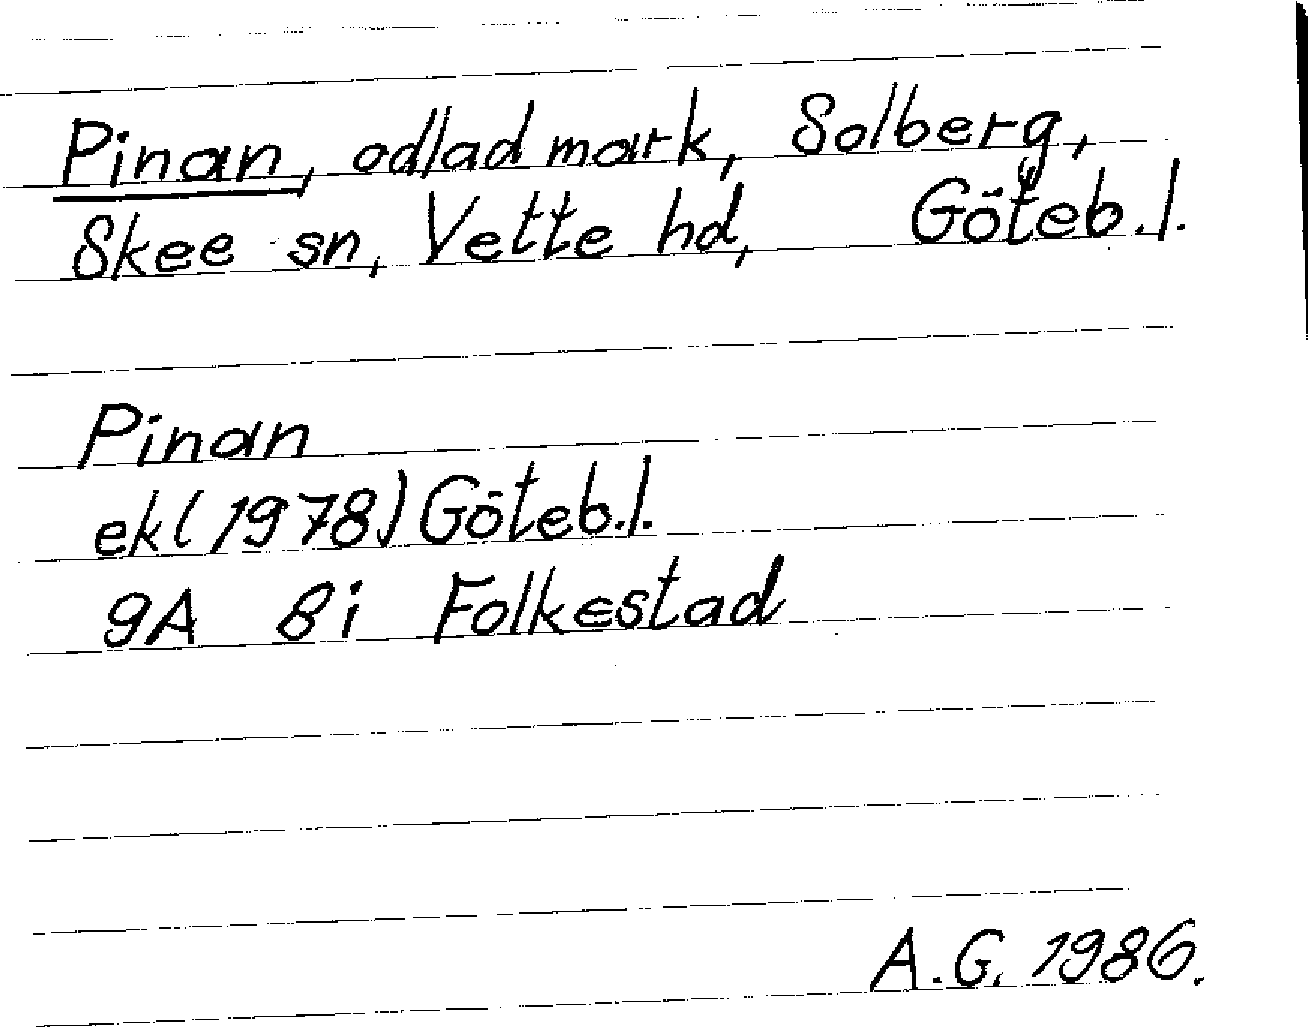 Pinan, odlad mark, Solberg,
Skee sn, Vette hd, Göteb.l.
Pinan
ek(1978)Göteb.l.
9A 8i Folkestad
A.G. 1986.